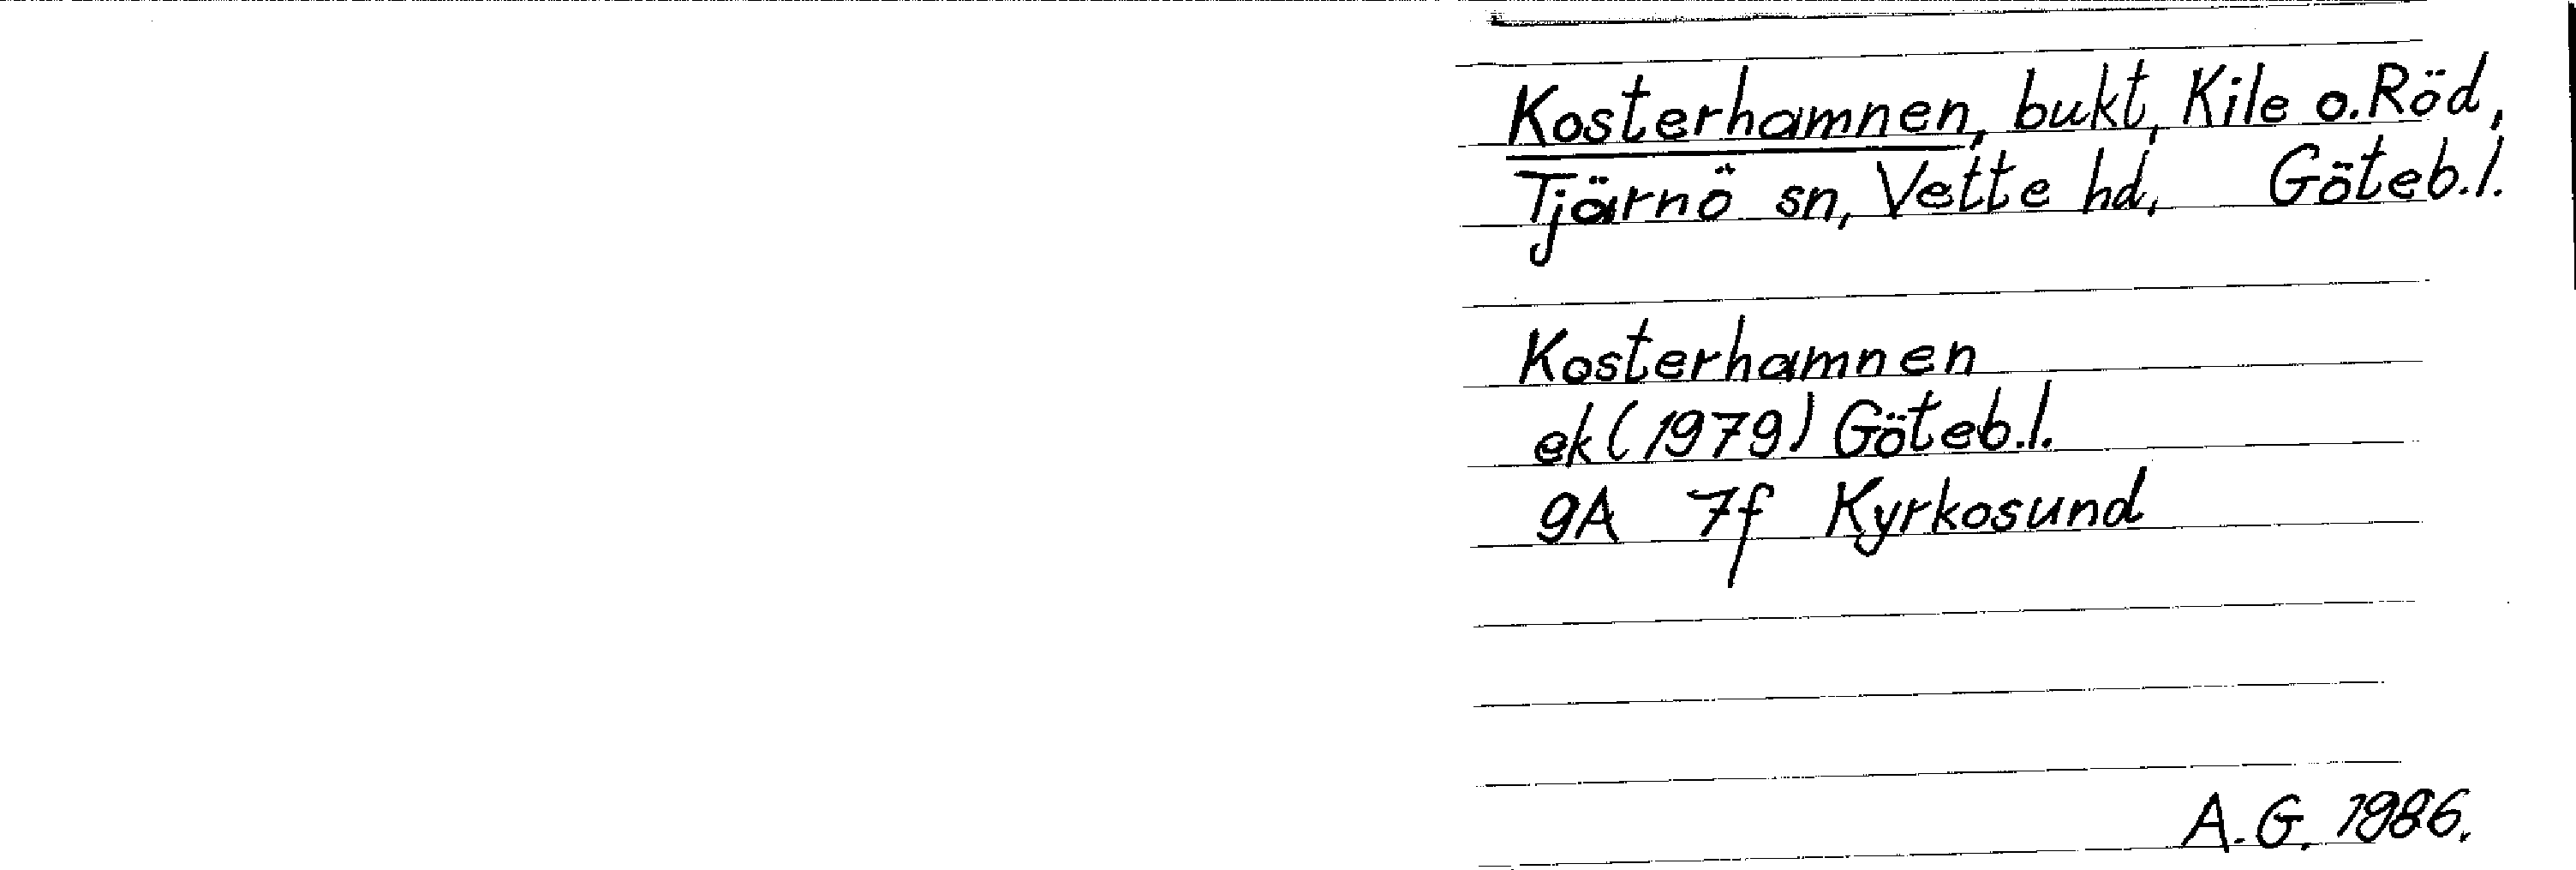 Kosterhamnen, bukt, Kile o. Röd,
Tjärnö sn, Vette hd, Göteb.l.
Kosterhamnen
ek (1979) Göteb.l.
9A 7f Kyrkosund
A.G. 1986.